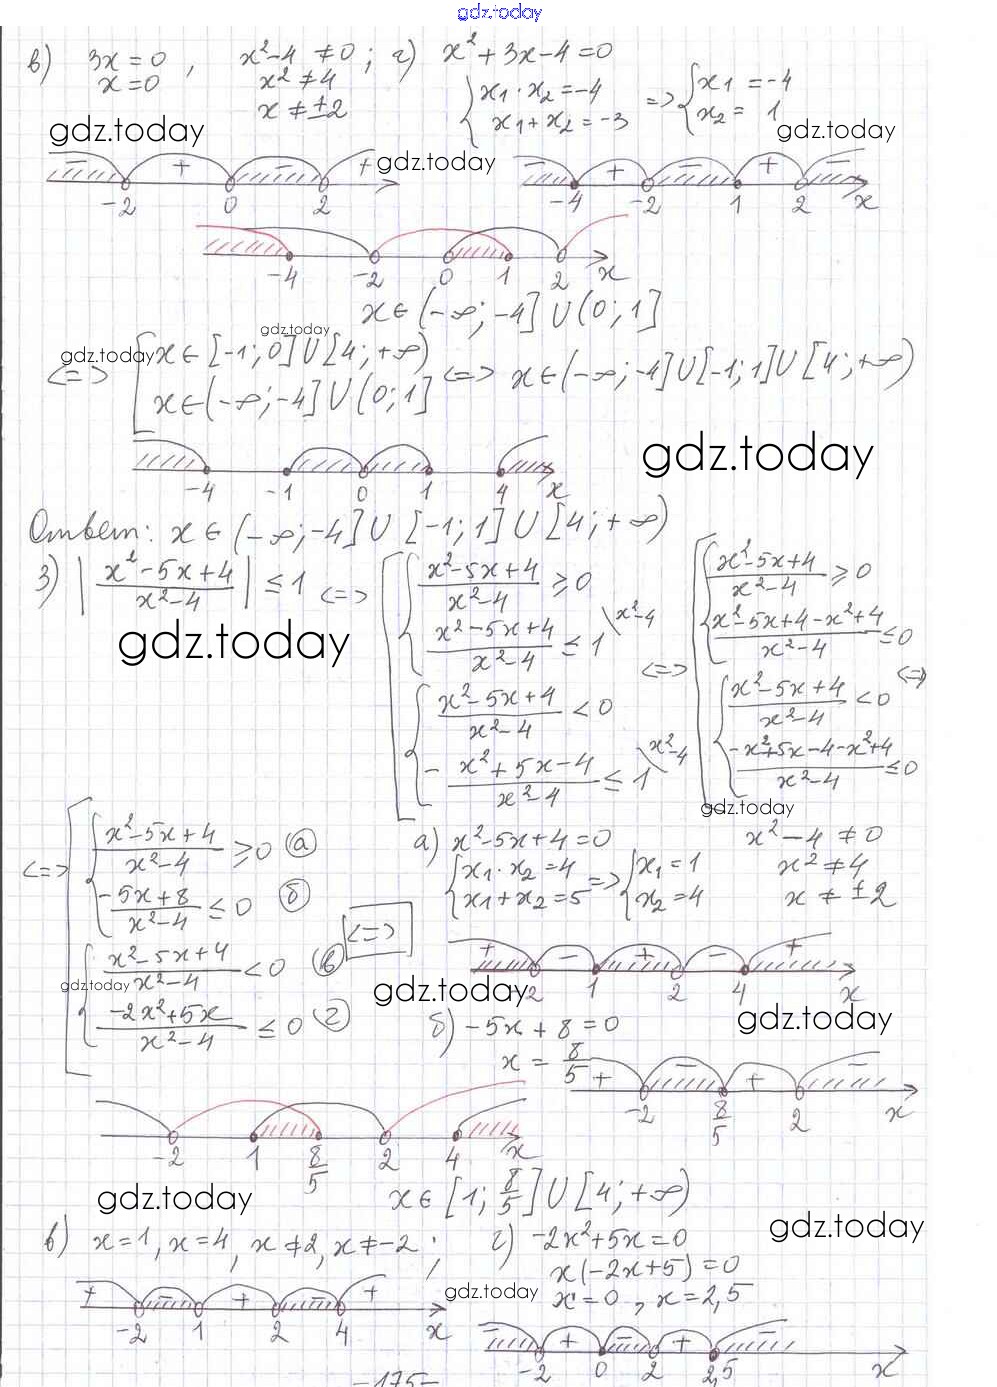 gdz.today
в) 3x = 0, x² - 4 ≠ 0; г) x² + 3x - 4 = 0
x = 0 x² ≠ 4 { x₁ · x₂ = -4 => { x₁ = -4
x ≠ ±2 x₁ + x₂ = -3 x₂ = 1
gdz.today gdz.today
gdz.today
- + - + - + - + -
-2 0 2 -4 -2 1 2 x
-4 -2 0 1 2 x
x ∈ (-∞; -4] ∪ (0; 1]
gdz.today
gdz.today
<=> [ x ∈ [-1; 0] ∪ [4; +∞) <=> x ∈ (-∞; -4] ∪ [-1; 1] ∪ [4; +∞)
x ∈ (-∞; -4] ∪ (0; 1]
gdz.today
-4 -1 0 1 4 x
Ответ: x ∈ (-∞; -4] ∪ [-1; 1] ∪ [4; +∞)
3) | (x² - 5x + 4)/(x² - 4) | ≤ 1 <=> [ { (x² - 5x + 4)/(x² - 4) ≥ 0
(x² - 5x + 4)/(x² - 4) ≤ 1 \ x²-4
{ (x² - 5x + 4)/(x² - 4) < 0
- (x² + 5x - 4)/(x² - 4) ≤ 1 \ x²-4
<=> [ { (x² - 5x + 4)/(x² - 4) ≥ 0
(x² - 5x + 4 - x² + 4)/(x² - 4) ≤ 0
{ (x² - 5x + 4)/(x² - 4) < 0
(-x² + 5x - 4 - x² + 4)/(x² - 4) ≤ 0 <=>
gdz.today
gdz.today
<=> [ { (x² - 5x + 4)/(x² - 4) ≥ 0 (а)
(-5x + 8)/(x² - 4) ≤ 0 (б)
{ (x² - 5x + 4)/(x² - 4) < 0 (в)
(-2x² + 5x)/(x² - 4) ≤ 0 (г)
<=>
gdz.today
а) x² - 5x + 4 = 0 x² - 4 ≠ 0
{ x₁ · x₂ = 4 => { x₁ = 1 x² ≠ 4
x₁ + x₂ = 5 x₂ = 4 x ≠ ±2
+ - + - +
-2 1 2 4 x
gdz.today
gdz.today
б) -5x + 8 = 0
x = 8/5
+ - + -
-2 8/5 2 x
-2 1 8/5 2 4 x
gdz.today
x ∈ [1; 8/5] ∪ [4; +∞)
gdz.today
в) x = 1, x = 4, x ≠ 2, x ≠ -2; г) -2x² + 5x = 0
x(-2x + 5) = 0
gdz.today
x = 0, x = 2,5
+ - + - +
-2 1 2 4 x
- + - + -
-2 0 2 2,5 x
-175-